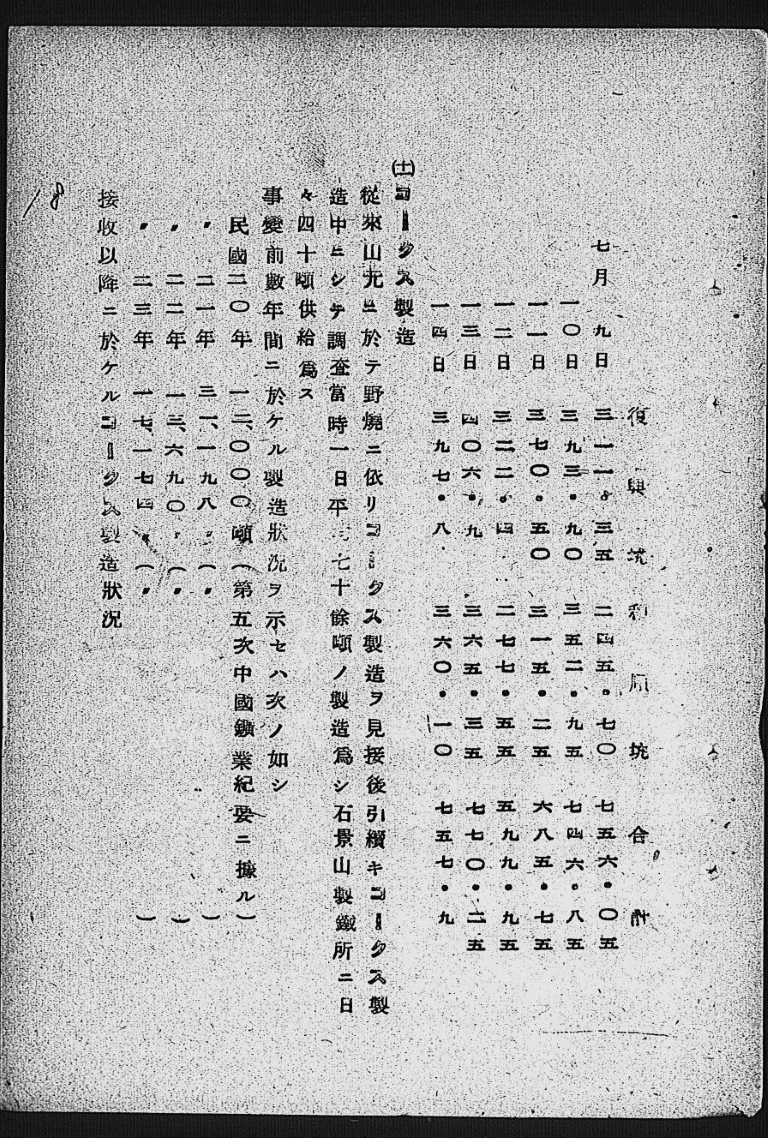 復興坑 和順坑 合計
七月 九日 三一一・三五 二四五・七〇 七五六・〇五
一〇日 三九三・九〇 三五二・九五 七四六・八五
一一日 三七〇・五〇 三一五・二五 六八五・七五
一二日 三二二・四 二七七・五五 五九九・九五
一三日 四〇六・九 三六五・三五 七七〇・二五
一四日 三九七・八 三六〇・一〇 七五七・九
(十一)コークス製造
從來山元ニ於テ野燒ニ依リコークス製造ヲ見接後引續キコークス製
造中ニシテ調査當時一日平均七十餘噸ノ製造爲シ石景山製鐵所ニ日
々四十噸供給爲ス
事變前數年間ニ於ケル製造狀況ヲ示セハ次ノ如シ
民國二〇年 一二、〇〇〇噸(第五次中國鑛業紀要ニ據ル)
〃 二一年 三一、一九八〃(〃 )
〃 二二年 一三、六九〇〃(〃 )
〃 二三年 一七、一七四〃(〃 )
接收以降ニ於ケルコークス製造狀況
18